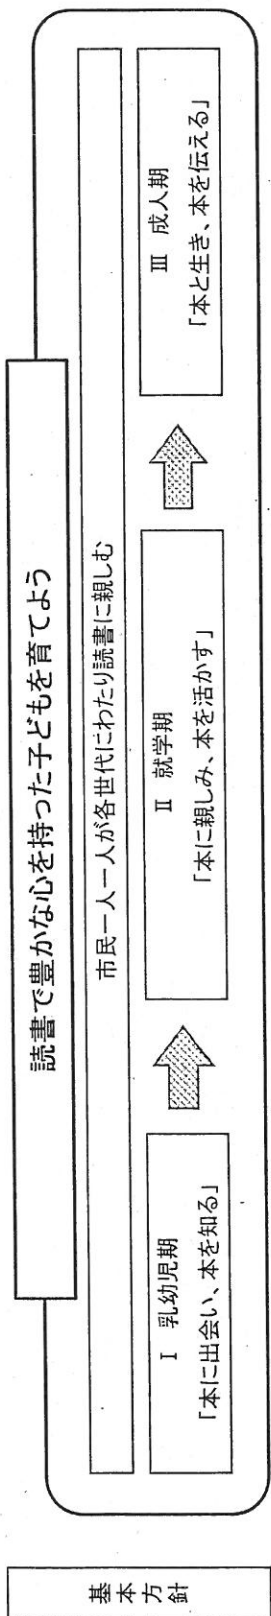 基本方針
読書で豊かな心を持った子どもを育てよう
市民一人一人が各世代にわたり読書に親しむ
Ⅰ 乳幼児期
「本に出会い、本を知る」
Ⅱ 就学期
「本に親しみ、本を活かす」
Ⅲ 成人期
「本と生き、本を伝える」